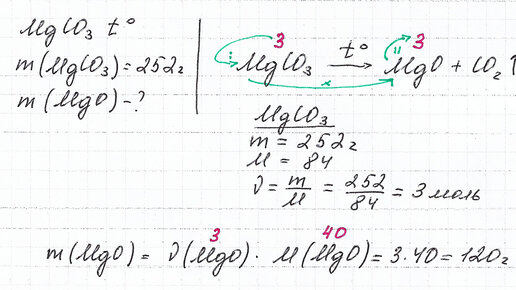 MgCO₃ t°
m(MgCO₃)=252г
m(MgO)-?
3 3
MgCO₃ t° → MgO + CO₂↑
MgCO₃
m = 252г
M = 84
ν = m/M = 252/84 = 3 моль
3 40
m(MgO) = ν(MgO) · M(MgO) = 3·40 = 120г